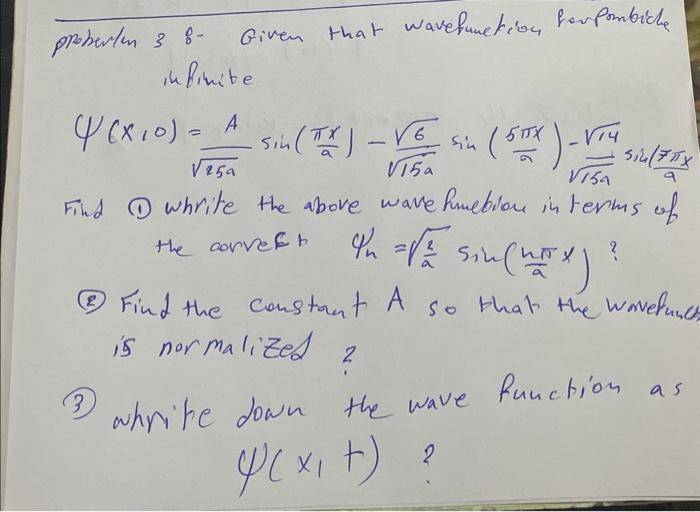 problem 3 8- Given that wavefunction for Pombiche
infinite
Ψ(x,0) = A/√25a sin(πx/a) - √6/√15a sin(5πx/a) - √14/√15a sin(7πx/a
Find ① whrite the above wave function in terms of
the correct Ψn = √2/a sin(nπ/a x) ?
② Find the constant A so that the wavefunc
is normalized ?
③ whrite down the wave function as
Ψ(x, t) ?